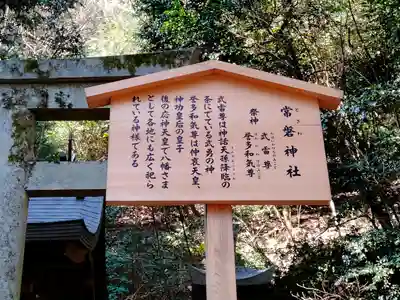 常磐神社
ときわ
祭神 武雷尊
登多和気尊
武雷尊は神話天孫降臨の
条にでている武勇の神
登多和気尊は仲哀天皇、
神功皇后の皇子
後の応神天皇で八幡さま
として各地にも広く祀ら
れている神様である